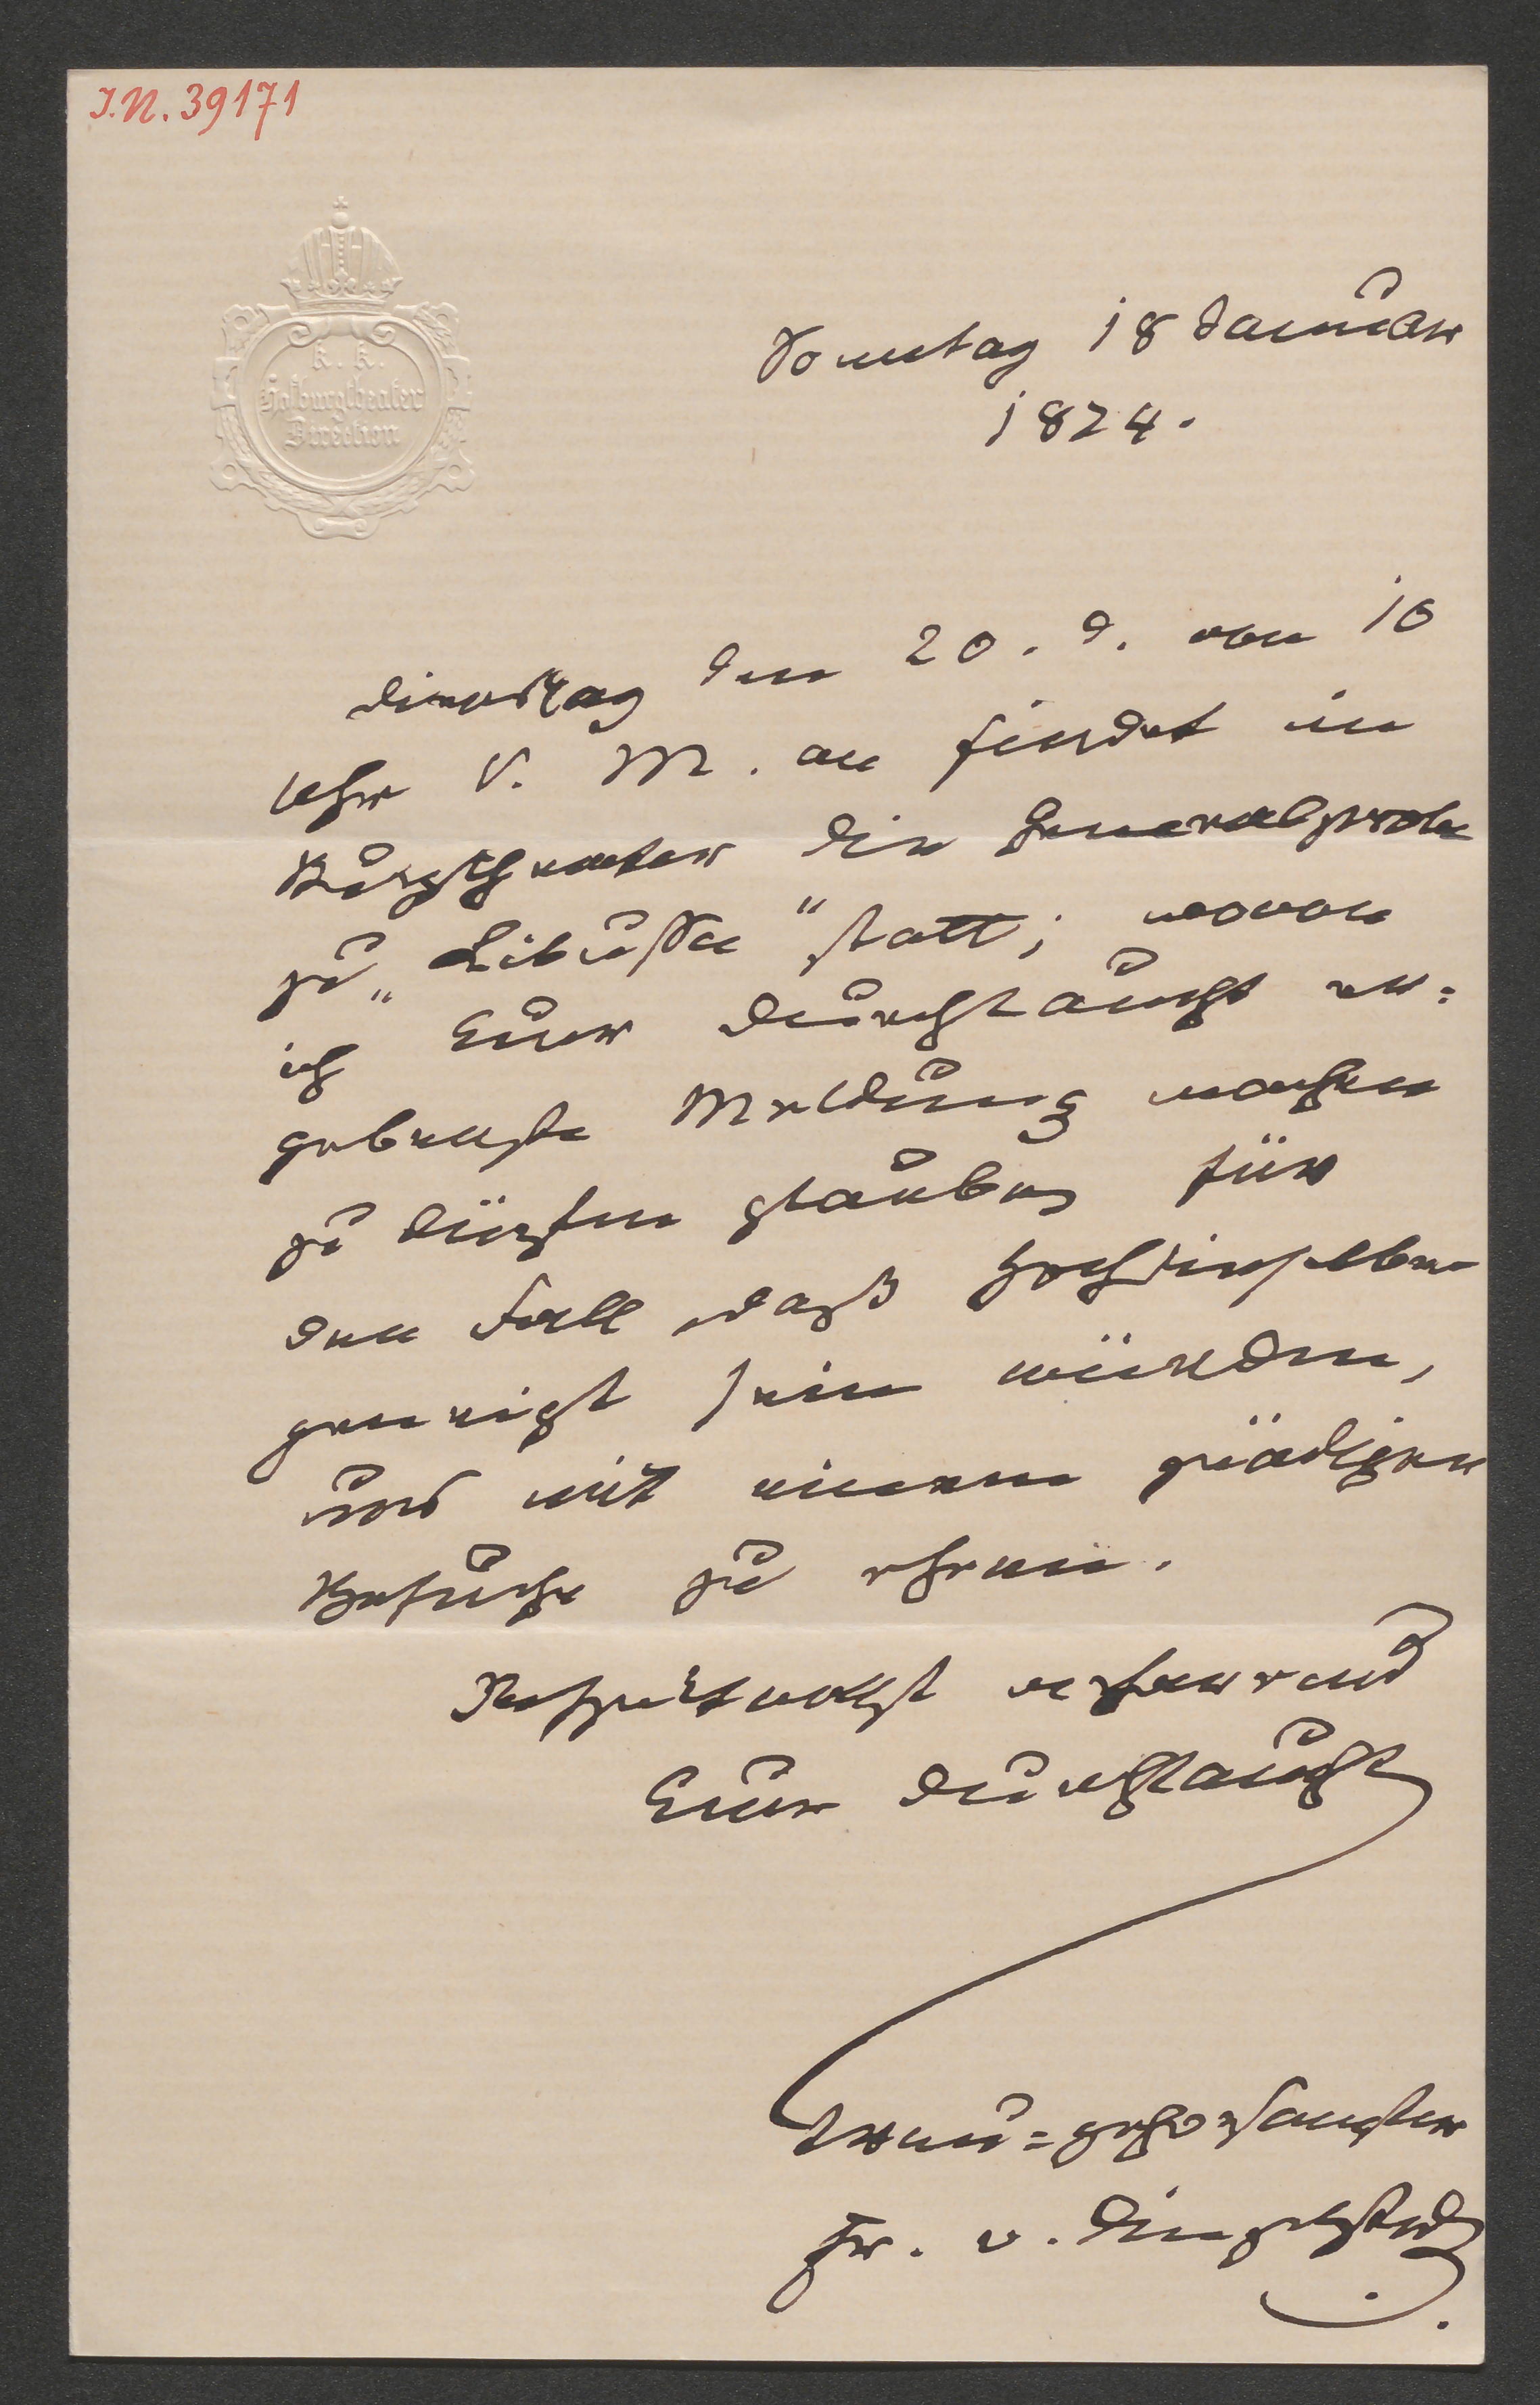 I.N. 39171
K. K.
Hofburgtheater
Direction
Sonntag 18 Januar
1874.
Dienstag den 20. d. von 10
Uhr V. M. an findet im
Burgtheater die Generalprobe
zu „Libussa" statt; wovon
ich Euer Durchlaucht er=
gebenste Meldung machen
zu dürfen glaube, für
den Fall, daß Hochdieselben
geneigt sein würden,
uns mit einem gnädigen
Besuche zu ehren.
Respektvollst verharrend
Euer Durchlaucht
treu=gehorsamster
Fr. v. Dingelstedt